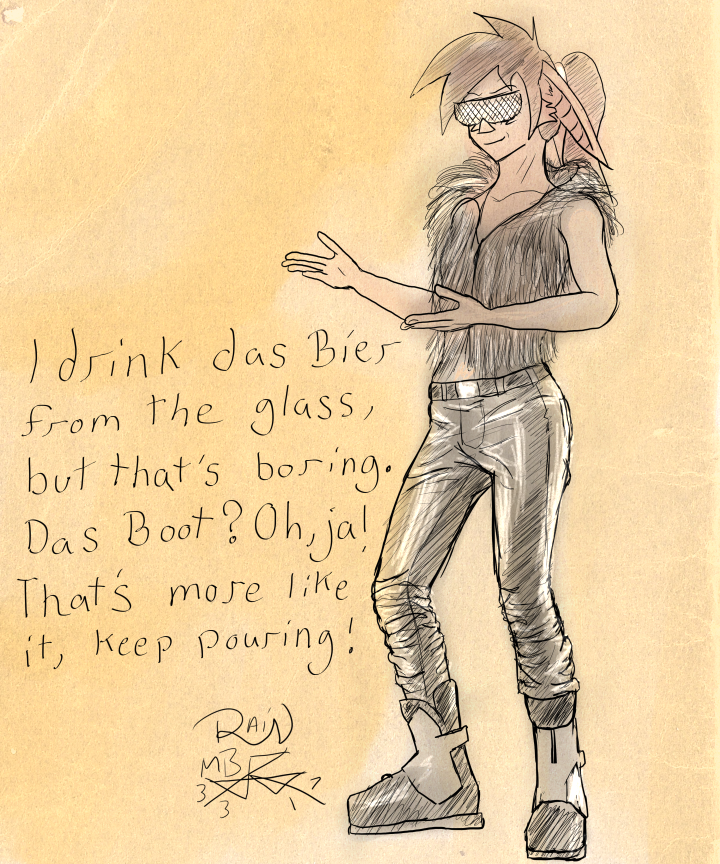 I drink das Bier
from the glass,
but that's boring.
Das Boot? Oh, ja!
That's more like
it, keep pouring!
RAiN
MB
3 3 17